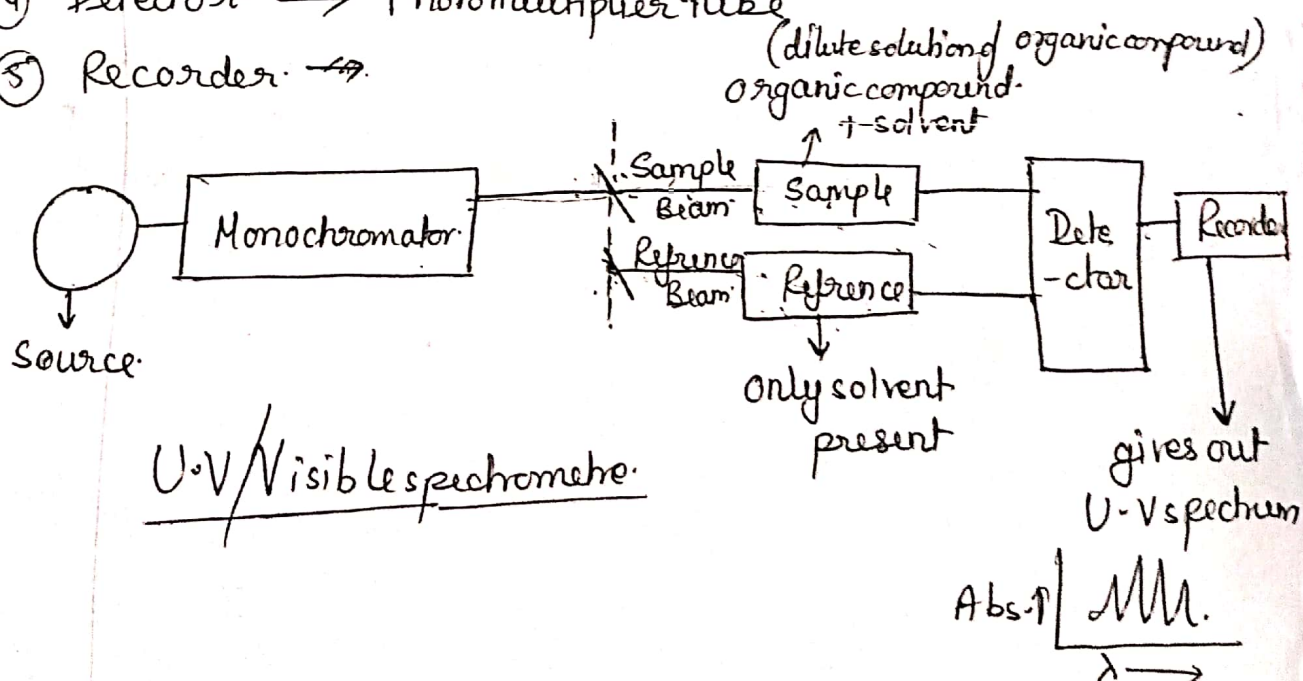 4) Detector → Photomultiplier tube
5) Recorder.
(dilute solution of organic compound)
organic compound.
+ solvent
Sample
Beam
Sample
Monochromator.
Refrence
Beam
Refrence
Dete
-ctor
Recorder
Source.
only solvent
present
gives out
U-V spectrum
U.V/Visible spectrometre.
Abs.↑
λ →